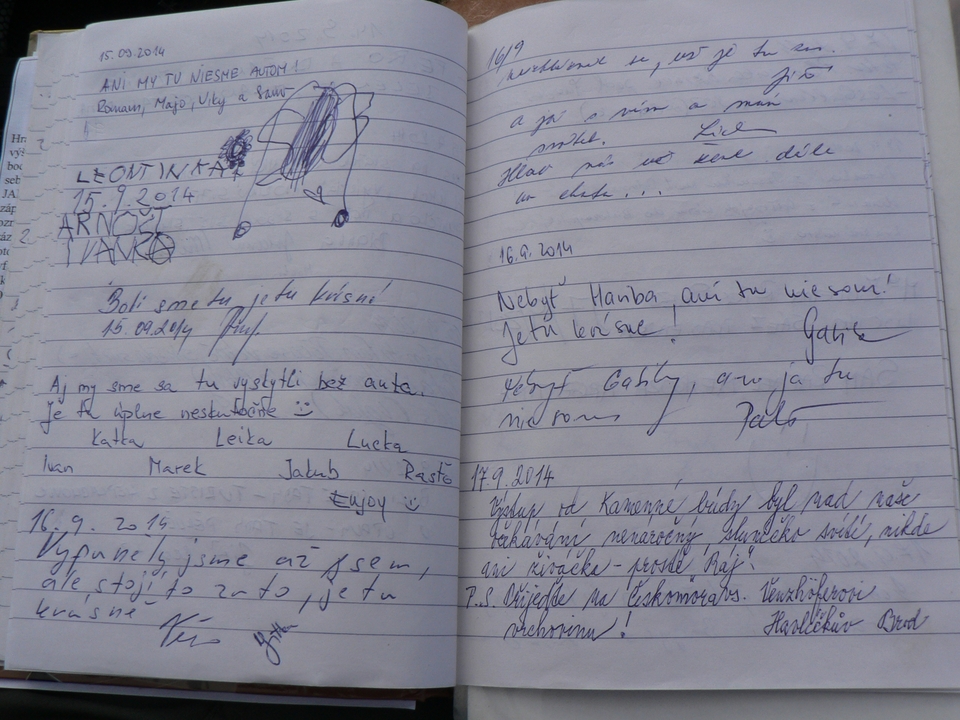 15.09.2014
ANI MY TU NIESME AUTOM!
Roman, Majo, Viky a Samo
LEONTINKA
15.9.2014
ARNOŠT
IVANKA
Boli sme tu je tu krásně
15.09.2014
Aj my sme sa tu vyskytli bez auta.
Je tu úplne neskutočne
Katka Leika Lucka
Ivan Marek Jakub Rasťo
Enjoy
16. 9. 2014
Vypuněly jsme až jsem,
ale stojí to zato, je tu
krásně
16/9
se, už je tu
a já s ním a mám
Hlad nás už žene dále
16.9.2014
Nebyť Hariba, ani tu nie som!
Je tu krásne! Gabika
Nebyť Gabiky, ano ja tu
nie som Palo
17.9.2014
Výstup od Kamenné búdy byl nad naše
očekávání nenáročný, sluníčko svítí, nikde
ani živáčka - prostě Ráj!
P.S. Přijeďte na Českomoravs.
vrchovinu! Havlíčkův Brod
Hr
výš
boc
seb
JA
záp